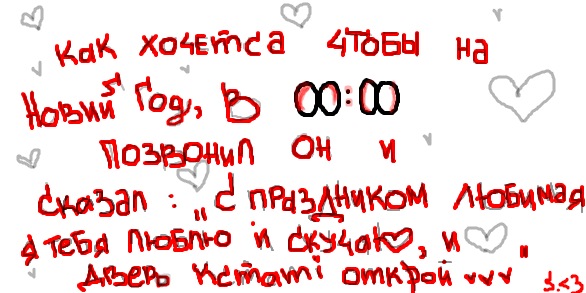 как хочется чтобы на
Новий Год, в 00:00
позвонил он и
сказал: „с праздником любимая
я тебя люблю и скучаю, и
дверь кстаті открой ᵥᵥᵥ"